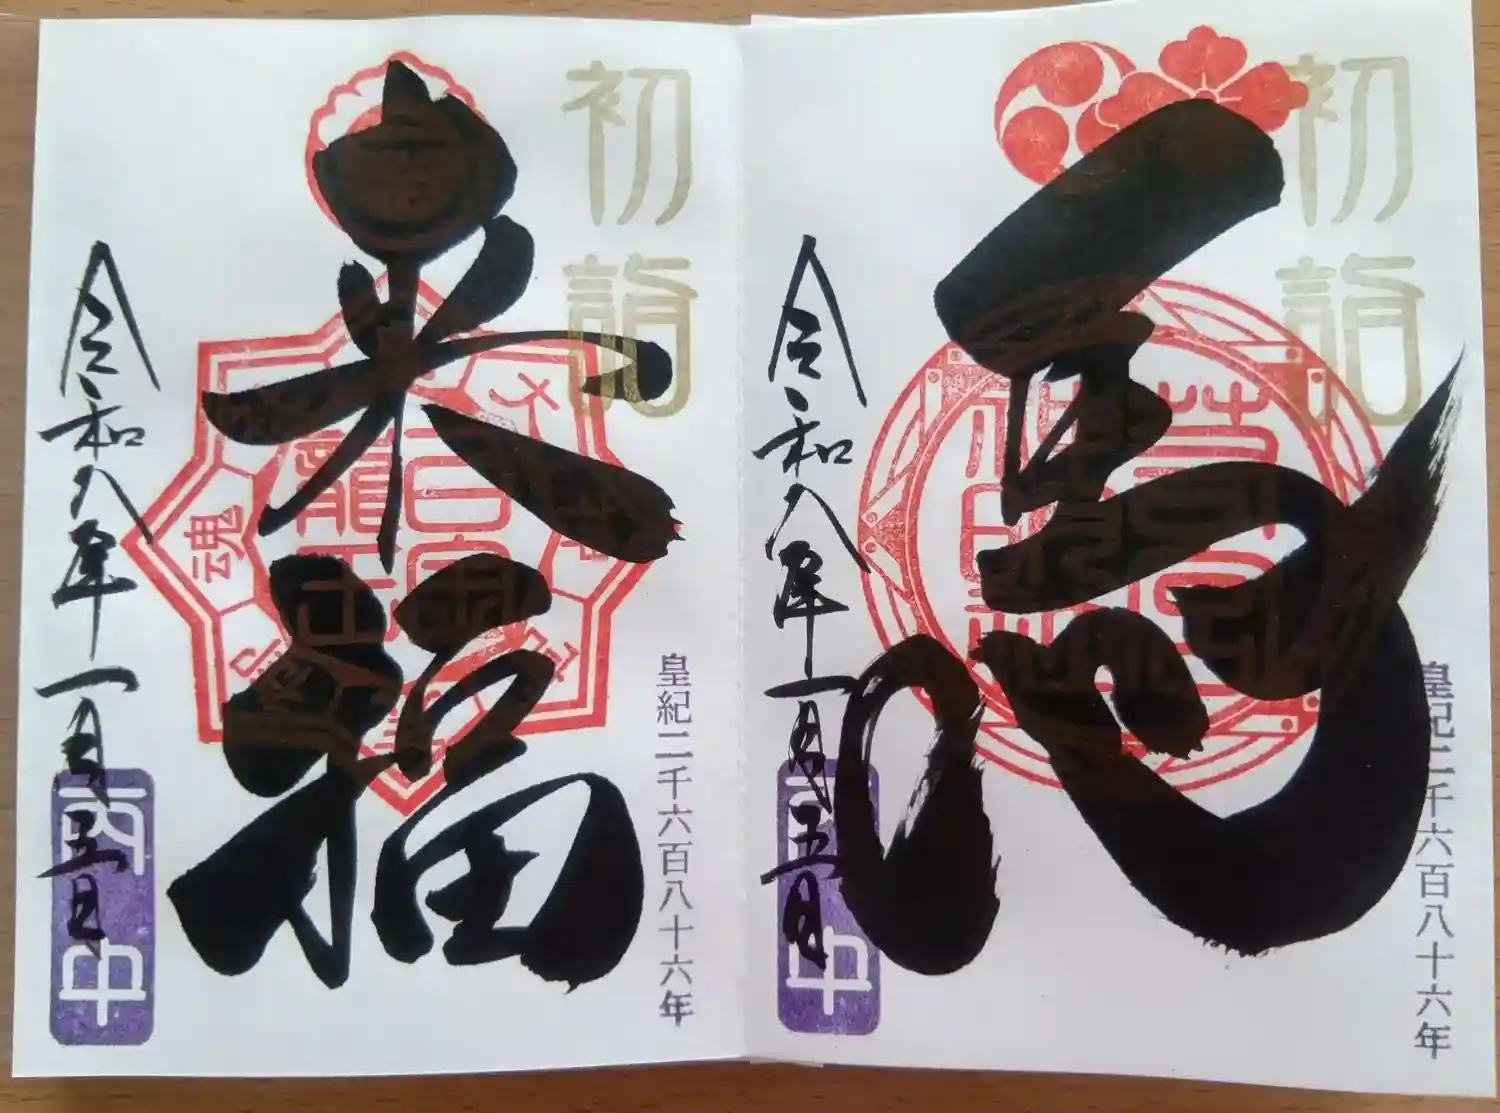 初詣
皇紀二千六百八十六年
馬
令和八年一月五日
初詣
皇紀二千六百八十六年
来福
令和八年一月五日
丙午
魂